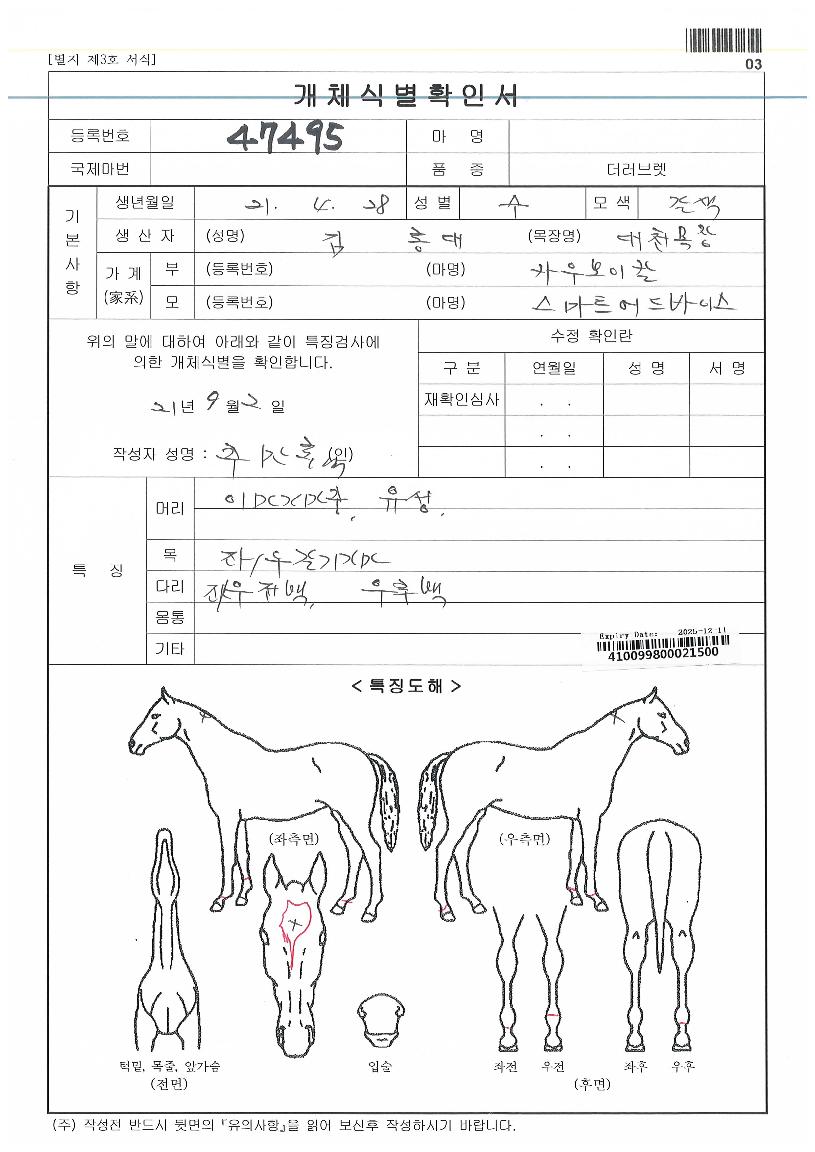 [별지 제3호 서식]
03
개체식별확인서
등록번호 47495 마 명
국제마번 품 종 더러브렛
기본사항
생년월일 21. 4. 28 성별 수 모색 갈색
생산자 (성명) 김홍대 (목장명) 대천목장
가계 (家系) 부 (등록번호) (마명) 카우보이칼
모 (등록번호) (마명) 스마트어드바이스
위의 말에 대하여 아래와 같이 특징검사에
의한 개체식별을 확인합니다.
21년 9월 2일
작성자 성명 : (인)
수정 확인란
구 분 연월일 성 명 서 명
재확인심사 . .
. .
. .
특 징
머리 유성.
목 좌/우
다리 좌/우전백, 우후백
몸통
기타
Expiry Date: 2025-12-11
410099800021500
< 특징도해 >
(좌측면) (우측면)
턱밑, 목줄, 앞가슴 (전면)
입술
좌전 우전 좌후 우후
(후면)
(주) 작성전 반드시 뒷면의 『유의사항』을 읽어 보신후 작성하시기 바랍니다.